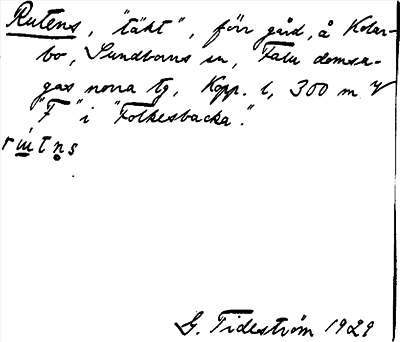 Rutens, "täkt", förr gård, å Kolar-
bo, Sundborns sn, Falu domsa-
gas norra tg, Kopp. l, 300 m V
"F" i "Folkesbacka".
G. Tideström 1929